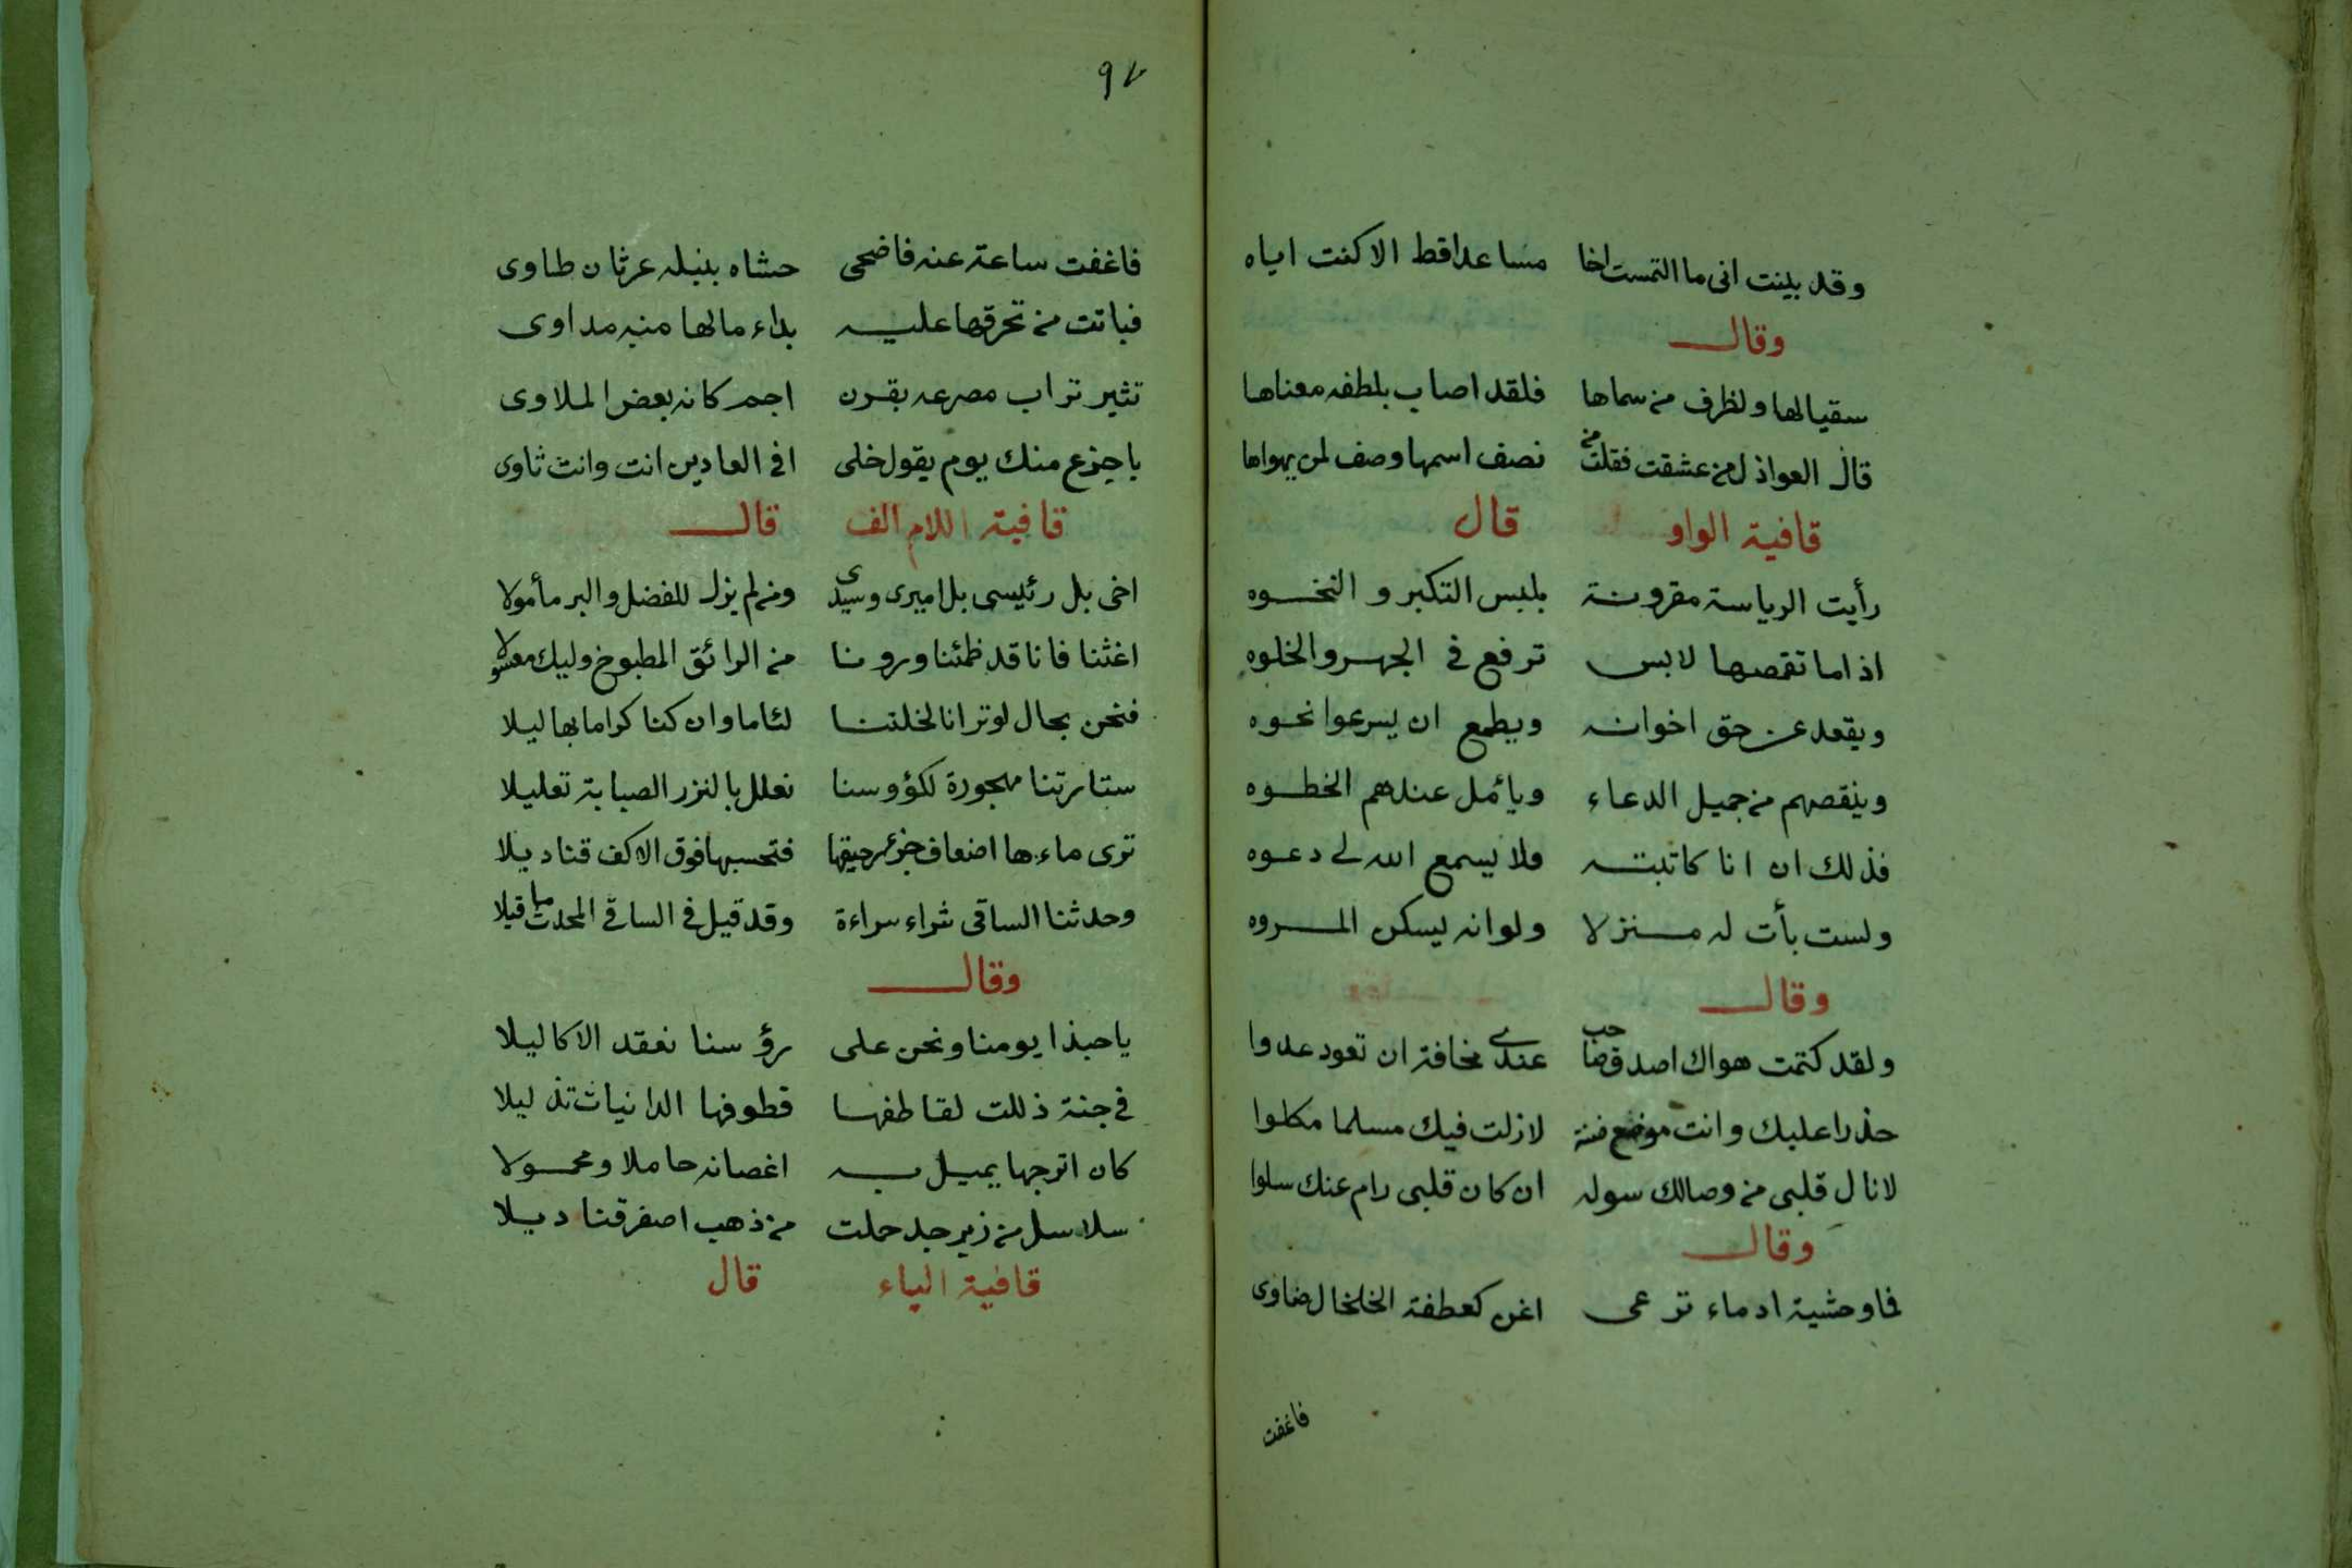 وقد بينت انى ما التمست اخا مساعدا قط الا كنت اياه
وقال
سقيا لها ولظرف من سماها فلقد اصاب بلطفه معناها
قال العواذل من عشقت فقلت من نصف اسمها وصف لمن يهواها
قافية الواو قال
رأيت الرياسة مقرونة بلبس التكبر و النخوه
اذا ما تقمصها لابس ترفع فى الجهر والخلوه
ويقعد عن حق اخوانه ويطمع ان يسرعوا نحوه
وينقصهم من جميل الدعاء ويأمل عندهم الخطوه
فذلك ان انا كاتبته فلا يسمع الله لى دعوه
ولست بأت له منزلا ولو انه يسكن المروه
وقال
ولقد كتمت هواك اصدق صاحب عندى مخافة ان تعود عدوا
حذرا عليك وانت موضع لازلت فيك مسلما مكلوا
لانال قلبى من وصالك سوله ان كان قلبى رام عنك سلوا
وقال
فما وحشية ادماء ترعى اغن كعطفة الخلخال ضاوى
فاغفت
٩٧
فاغفت ساعة عنه فاضحى حشاه بنبله عرثان طاوى
فباتت من تحرقها عليه بداء مالها منه مداوى
تثير تراب مصرعه بقرن اجم كانه بعض الملاوى
باجزع منك يوم يقول خلى افى العادين انت وانت ثاوى
قافية اللام الف قال
اخى بل رئيسى بل اميرى وسيدى ومن لم يزل للفضل والبر مأمولا
اغثنا فانا قد ظمئنا ورونا من الرائق المطبوخ وليك معسولا
فنحن بحال لو ترانا لخلتنا لئاما وان كنا كراما بهاليلا
ستارتنا مهجورة لكؤوسنا نعلل بالنزر الصبابة تعليلا
ترى ماءها اضعاف جزء رحيقها فتحسبها فوق الاكف قناديلا
وحدثنا الساقى شراء سراءة وقد قيل فى الساقى المحدث ما قيلا
وقال
ياحبذا يومنا ونحن على رؤسنا نعقد الاكاليلا
فى جنة ذللت لقاطفها قطوفها الدانيات تذليلا
كان اترجها يميل به اغصانه حاملا ومحمولا
سلاسل من زبرجد حملت من ذهب اصفر قناديلا
قافية الياء قال